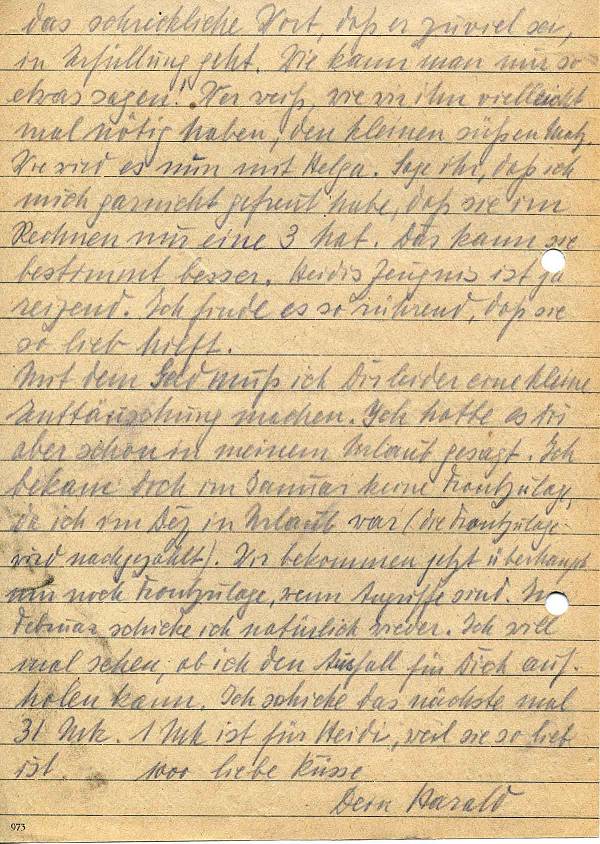 das schreckliche Wort, daß er zuviel sei,
in Erfüllung geht. Wie kann man nur so
etwas sagen! Wer weiß, wie wir ihn vielleicht
mal nötig haben, den kleinen süßen Matz.
Wie wird es nun mit Helga. Sage ihr, daß ich
mich garnicht gefreut habe, daß sie im
Rechnen nur eine 3 hat. Das kann sie
bestimmt besser. Heidis Zeugnis ist ja
reizend. Ich finde es so rührend, daß sie
so lieb hilft.
Mit dem Geld muß ich Dir leider eine kleine
Enttäuschung machen. Ich hatte es Dir
aber schon in meinem Urlaub gesagt. Ich
bekam doch im Januar keine Frontzulage,
da ich im Dez in Urlaub war (die Frontzulage
wird nachgezahlt). Wir bekommen jetzt überhaupt
nur noch Frontzulage, wenn Angriffe sind. Im
Februar schicke ich natürlich wieder. Ich will
mal sehen, ob ich den Ausfall für Dich auf-
holen kann. Ich schicke das nächste mal
31 Mk. 1 Mk ist für Heidi, weil sie so lieb
ist. 1000 liebe Küsse
Dein Harald
973